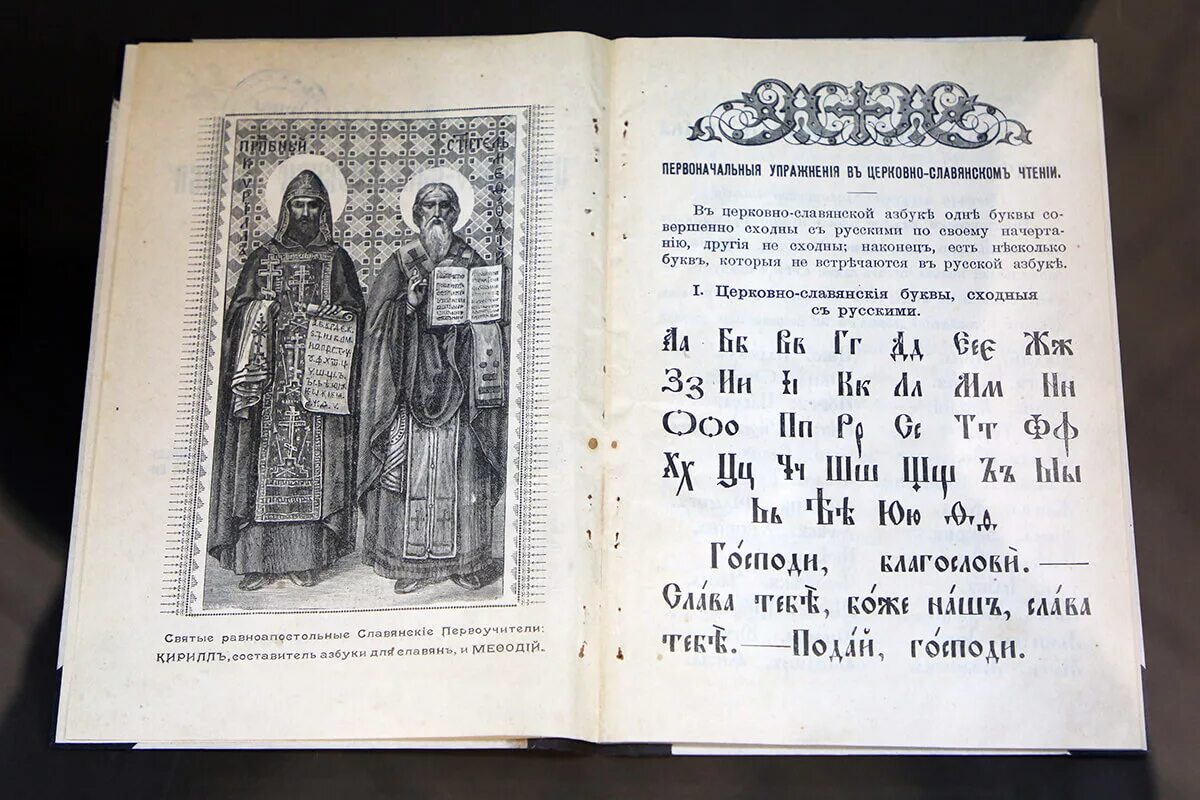 Святые равноапостольные Славянскіе Первоучители:
КИРИЛЛЪ, составитель азбуки для славян, и МЕѲОДІЙ.
ПЕРВОНАЧАЛЬНЫЯ УПРАЖНЕНІЯ ВЪ ЦЕРКОВНО-СЛАВЯНСКОМЪ ЧТЕНІИ.
Въ церковно-славянской азбукѣ однѣ буквы со-
вершенно сходны съ русскими по своему начерта-
нію, другія не сходны; наконецъ, есть нѣсколько
буквъ, которыя не встрѣчаются въ русской азбукѣ.
I. Церковно-славянскія буквы, сходныя
съ русскими.
Аа Бб Вв Гг Дд Еєе Жж
Зз Ии Ѵі Кк Лл Мм Нн
Ѻѻо Пп Рр Сс Тт Фф
Хх Цц Чч Шш Щщ Ъъ Ыы
Ьь Ѣѣ Юю Ѳѳ
Го́споди, благослови̂. —
Сла́ва тебѣ̀, бо́же на́шъ, сла́ва
тебѣ̀. — Пода́й, го́споди.